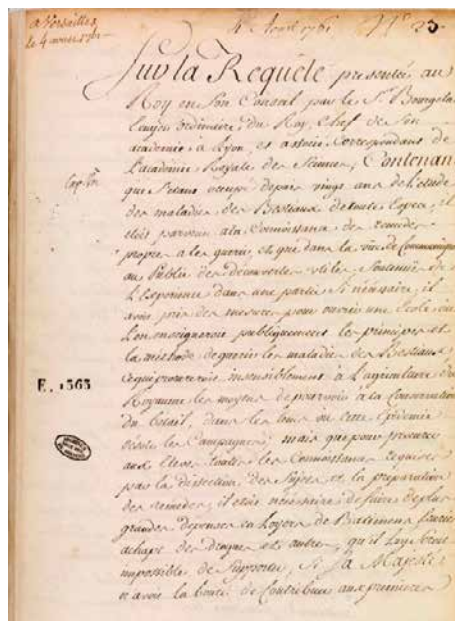 a Versailles
le 4 aoust 1761
4 Aoust 1761
N° 23.
Sur la Requête presentée au
Roy en Son Conseil par le Sr Bourgelat
Ecuyer ordinaire du Roy, Chef de Son
academie à Lyon, et associé Correspondant de
L'academie Royale des Sciences, Contenant
que S'etant occupé depuis vingt ans de l'etude
des maladies des Bestiaux de toute Espece, il
etoit parvenu a la Connoissance des remedes
propres a les guerir, et que dans la vüe de Communiquer
au Public des decouvertes utiles, Soutenües de
L'Experience dans une partie Si necessaire, il
avoit pris des mesures pour ouvrir une Ecole ou
L'on enseigneroit publiquement les principes et
la methode de guerir les maladies des Bestiaux
ce qui procureroit insensiblement à L'agriculture du
Royaume les moyens de pourvoir à la Conservation
du betail, dans les tems ou cette Epidemie
desole les Campagnes, mais que pour procurer
aux Eleves toutes les Connoissances requises
par la dissection des Sujets et la preparation
des remedes, il etoit necessaire de faire de plus
grandes depenses en Loyers de Batimens
achapt de drogues et autres, qu'il Luy seroit
impossible de Supporter, Si Sa Majesté
n'avoit la bonté de Contribuer aux premieres
E. 1363